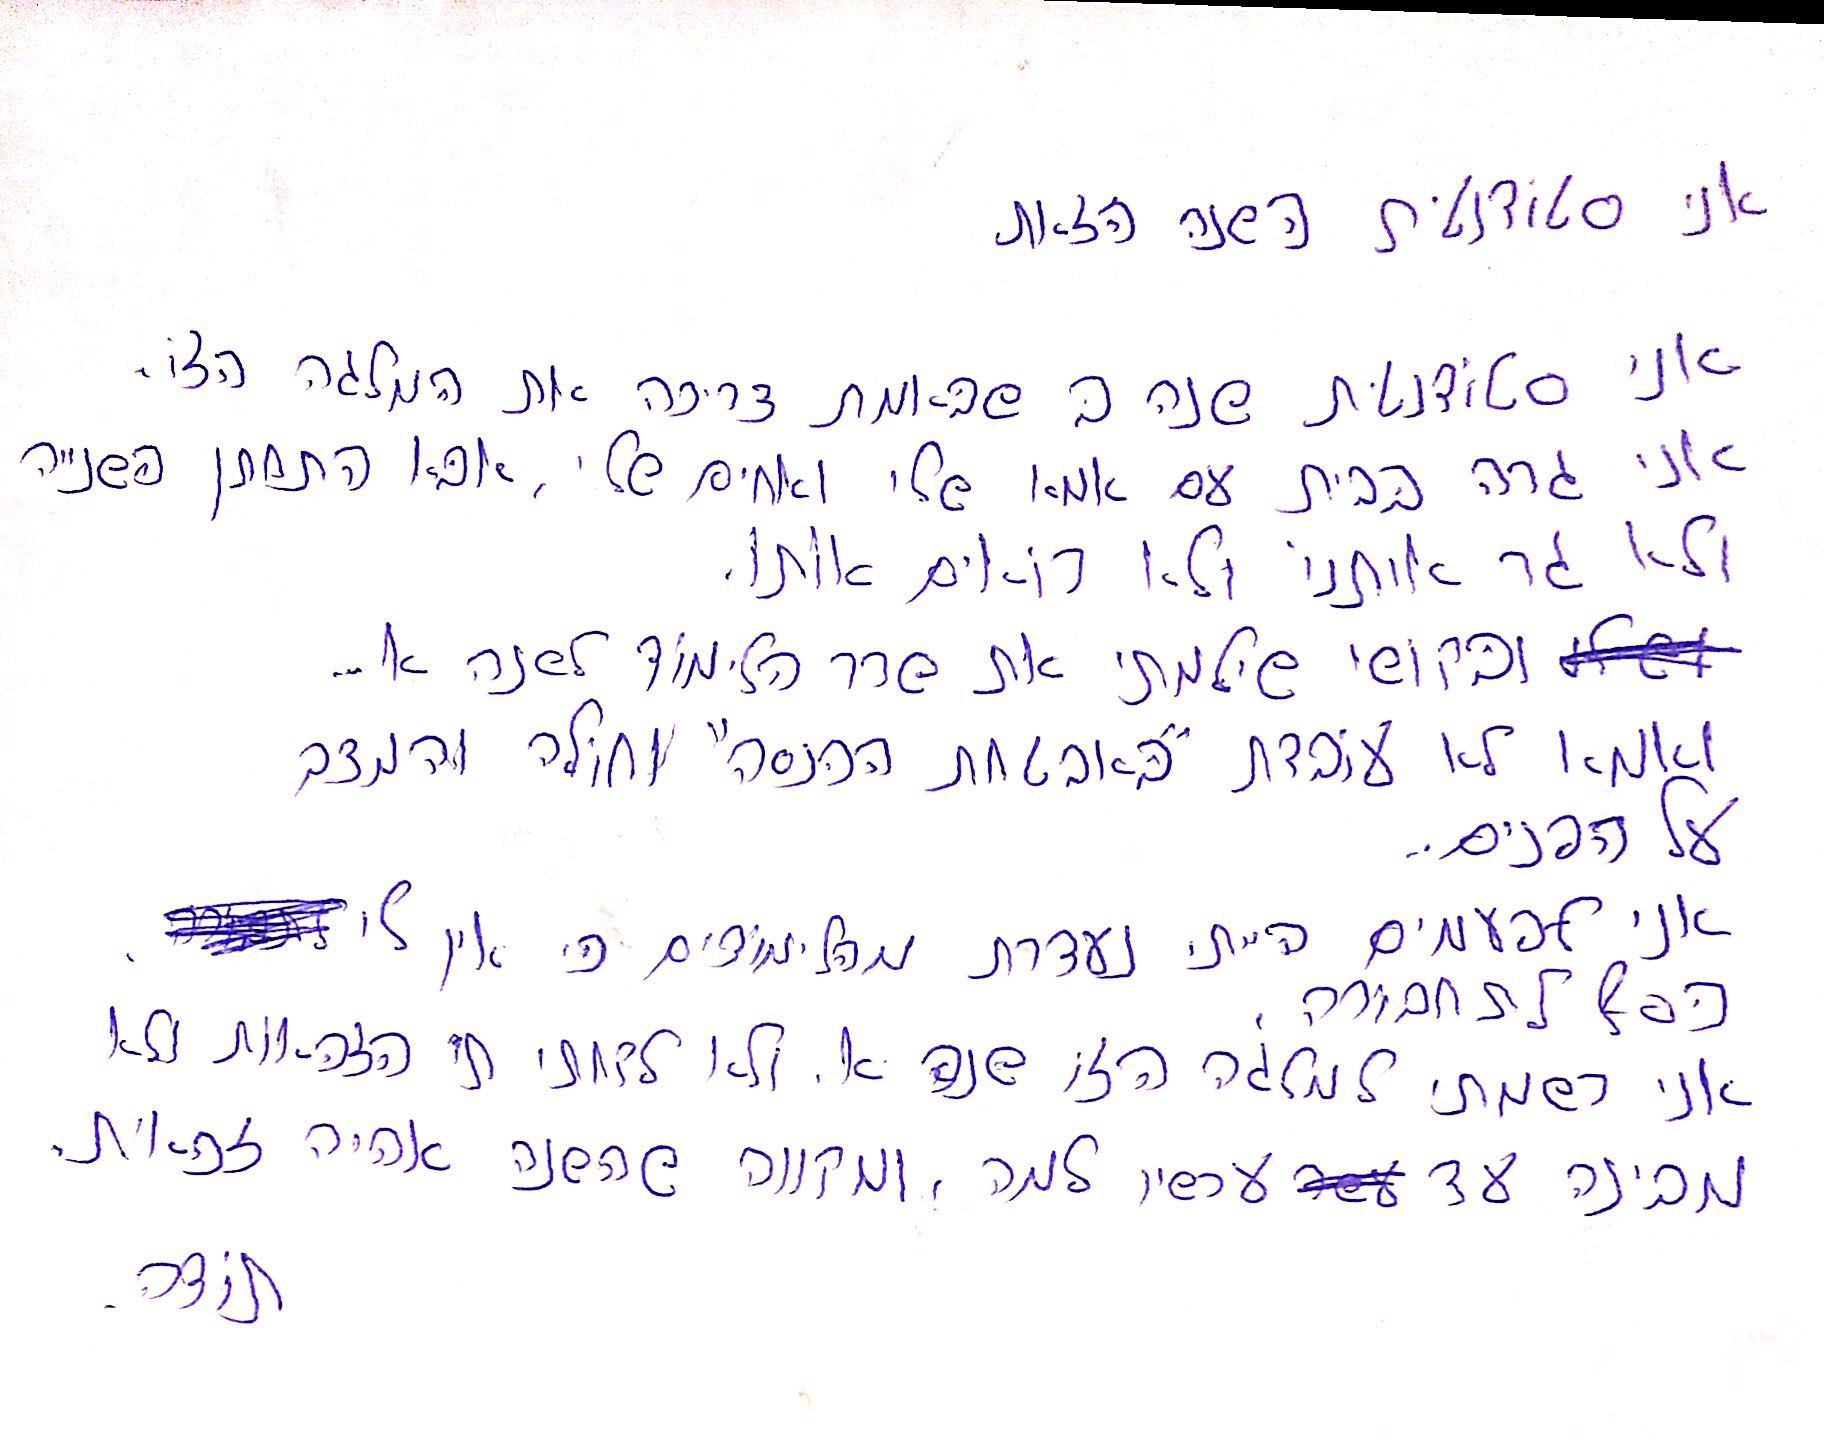 אני סטודנטית השנה הזאת
אני סטודנטית שנה ב שבאמת צריכה את המלגה הזו.
אני גרה בבית עם אמא שלי ואחים שלי, אבא התחתן בשנייה
ולא גר אותנו ולא רואים אותו.
ובקושי שילמתי את שכר הלימוד לשנה א...
ואמא לא עובדת "באבטחת הכנסה" וחולה והמצב
על הפנים..
אני לפעמים הייתי נעדרת מהלימודים כי אין לי
כסף לתחבורה.
אני רשמתי למלגה הזו שנה א. ולא לקחתי
הזכאות ולא
מבינה עד עכשיו למה, ומקווה שהשנה אהיה זכאית.
תודה.